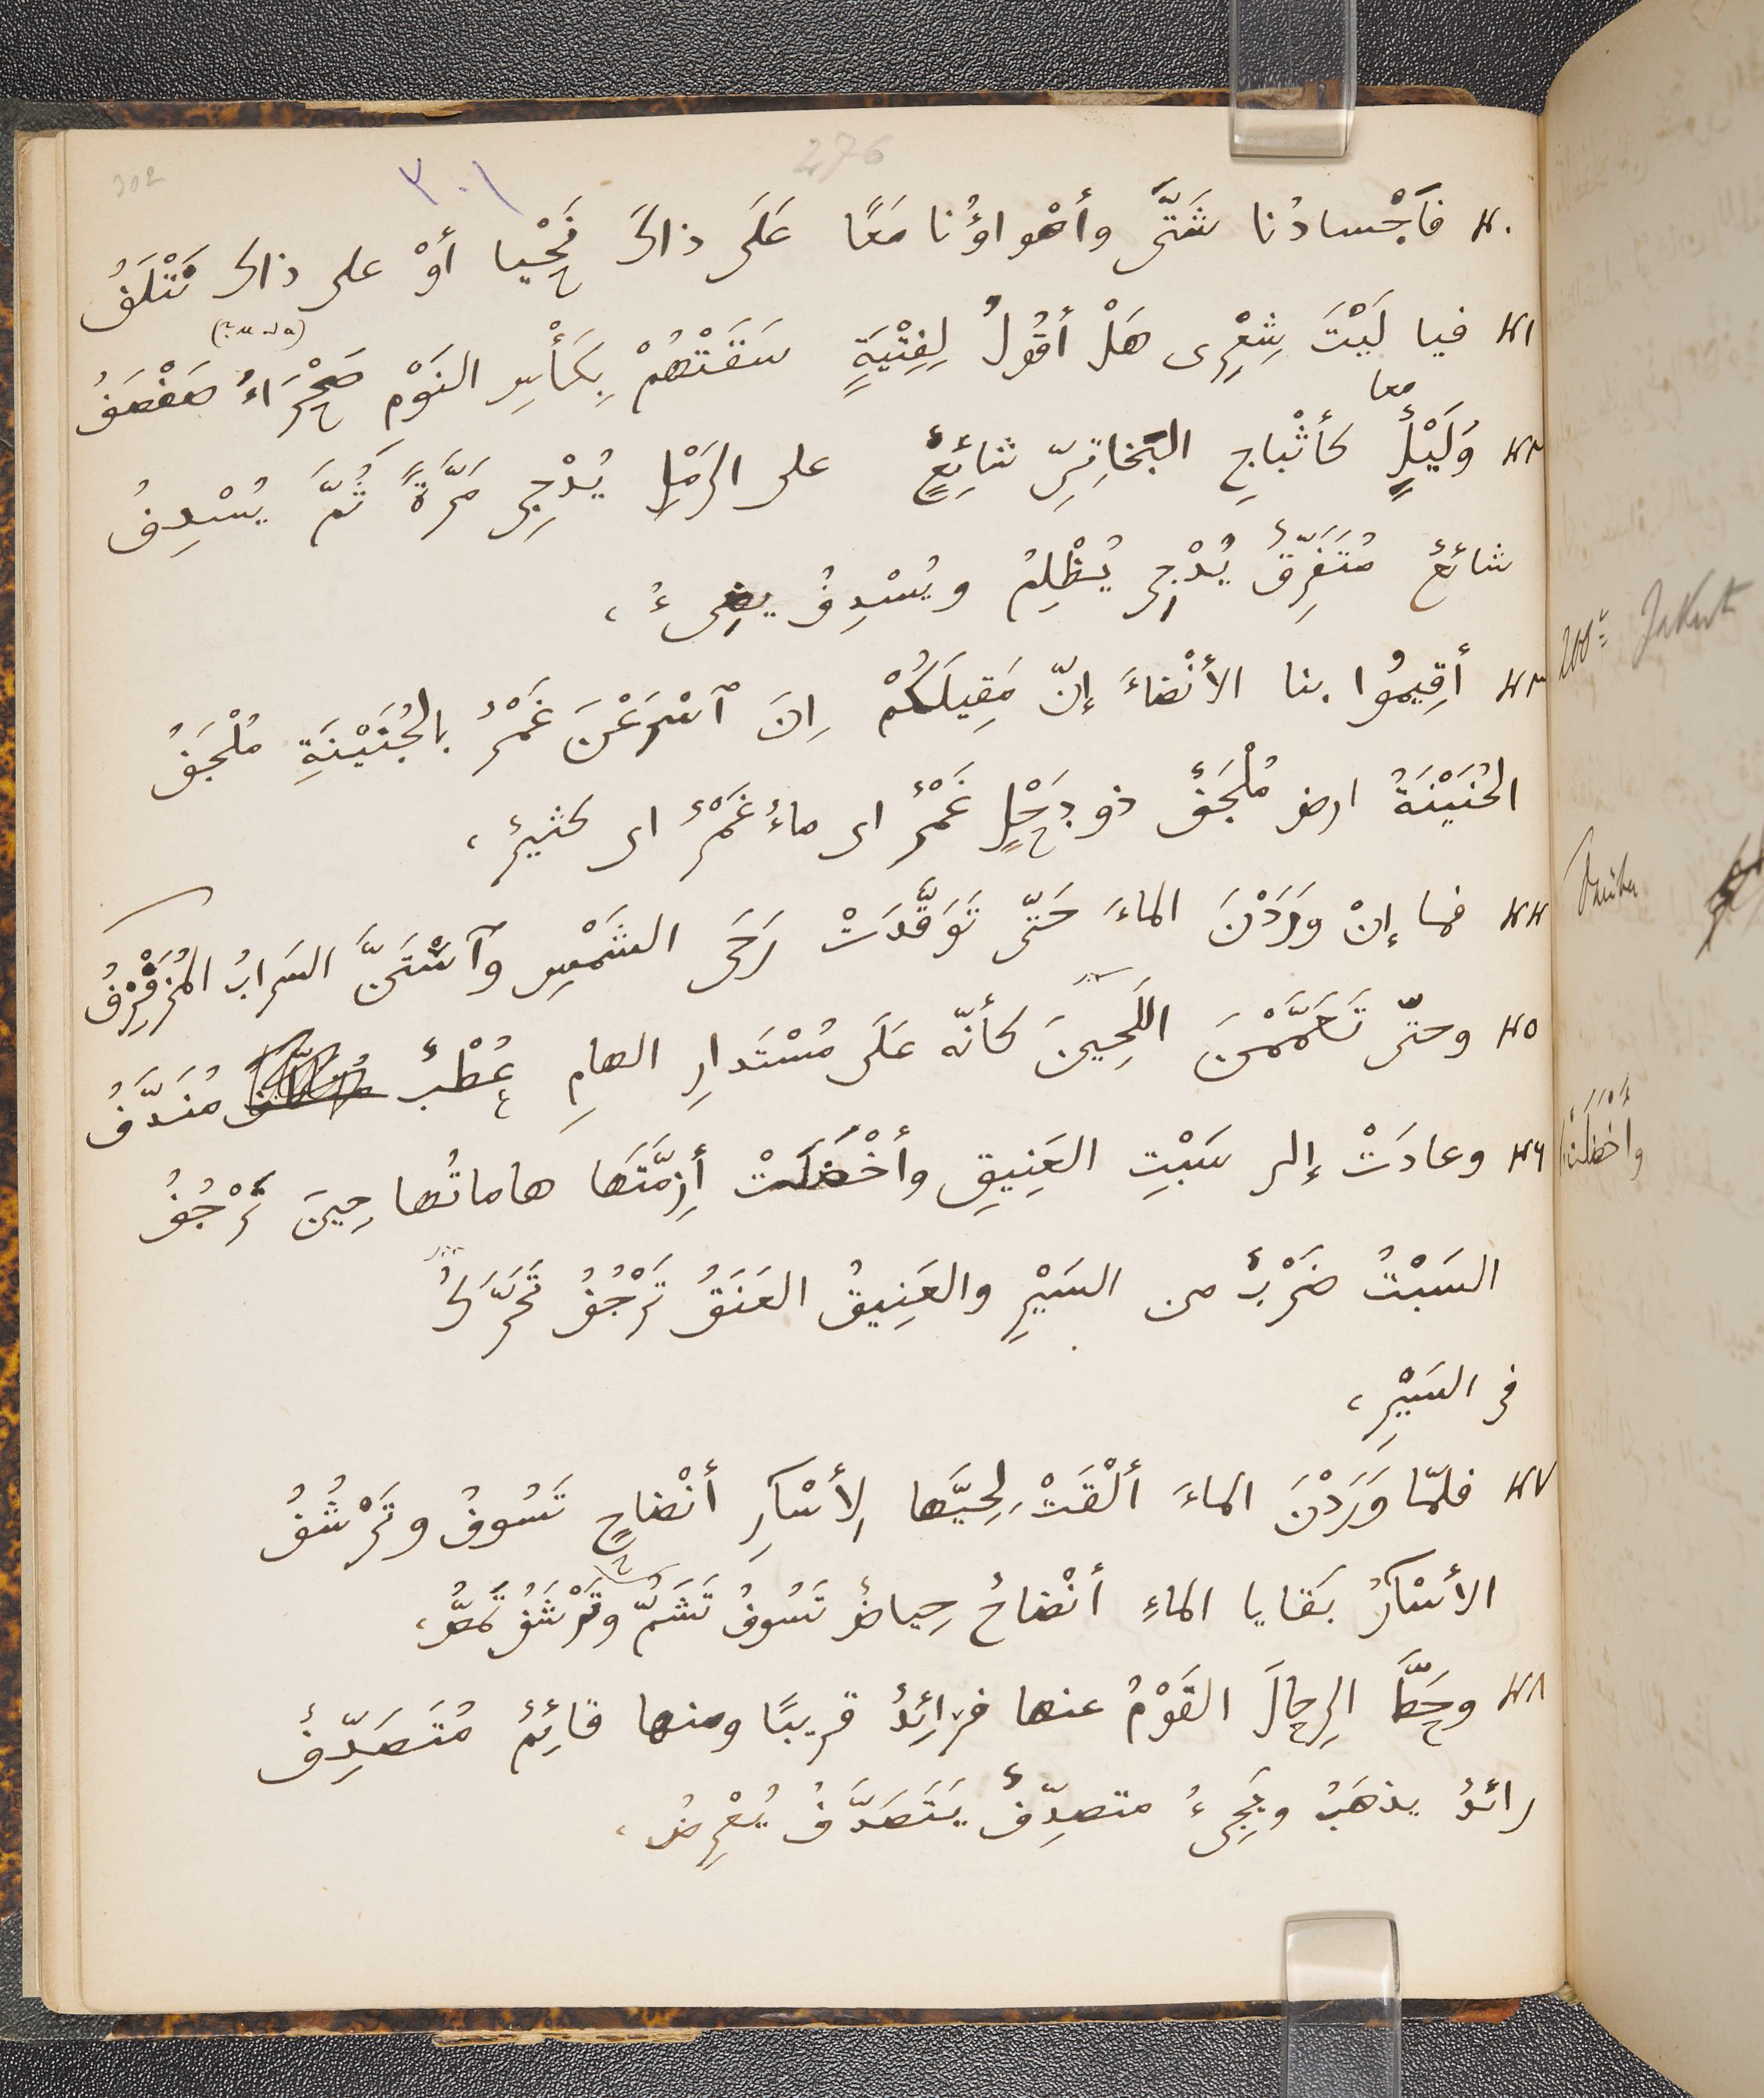 302
٣٠١
276
٤٠ فَأَجْسادُنا شَتَّى وأَهْواؤُنا مَعًا عَلَى ذاكَ نَحْيا أَوْ على ذاك نَتْلَفُ
٤١ فيا لَيْتَ شِعْرِى هَلْ أقُولُ لِفِتْيَةٍ سَقَتْهُمْ بِكَأْسِ النَوْمِ صَحْرَاءُ صَفْصَفُ
معا
٤٢ وَلَيْلٍ كأَثْباجِ البَخاتِىِّ شائِعٍ على الرَمْلِ يُدْجِى مَرَّةً ثُمَّ يُسْدِفُ
شائعٌ مُتَفَرِّقٌ يُدْجِى يُظْلِمُ ويُسْدِفُ يضِىءُ،
٤٣ أَقِيمُوا بنا الأَنْضاءَ إنّ مَقِيلَكُمْ اِنَ ٱسْرَعْنَ غَمْرٌ بالجُنَيْنَةِ مُلْجَفُ
الجُنَيْنَةُ ارض مُلْجَفٌ ذو دَحْلٍ غَمْرٌ اى ماءٌ غَمْرٌ اى كثيرٌ،
٤٤ فما إنْ وَرَدْنَ الماءَ حَتّى تَوَقَّدَتْ رَحَى الشَمْسِ وٱسْتَنَّ السَرابُ المُزَفْزِفُ
٤٥ وحتّى تَعَمَّمْنَ اللَجِينَ كأنّه عَلَى مُسْتَدارِ الهامِ عُطْبٌ مُنَدَّفُ
٤٦ وعادَتْ إلى سَبْتِ العَنِيقِ وأَخْضَلَتْ أَزِمَّتَها هاماتُها حِينَ تَرْجُفُ
السَبْتُ ضَرْبٌ من السَيْرِ والعَنِيقُ العَنَقُ تَرْجُفُ تَحَرَّكُ
فى السَيْرِ،
٤٧ فلمّا وَرَدْنَ الماءَ أَلْقَتْ لِحِيَّها لِأَسْآرِ أَنْضاحٍ تَسُوفُ وتَرْشُفُ
الأَسْآرُ بَقايا الماءِ أَنْضاحُ حِياضٌ تَسُوفُ تَشَمُّ وتَرْشَفُ تَمَصُّ،
٤٨ وحَطَّ الرِحالَ القَوْمُ عنها فرائِدٌ قريبًا ومنها قائِمٌ مُتَصَدِّفُ
رائدٌ يذهَبُ ويَجِىءُ متصدِّفٌ يَتَصَدَّفُ يُعْرِضُ،
Jakut
واخضلت